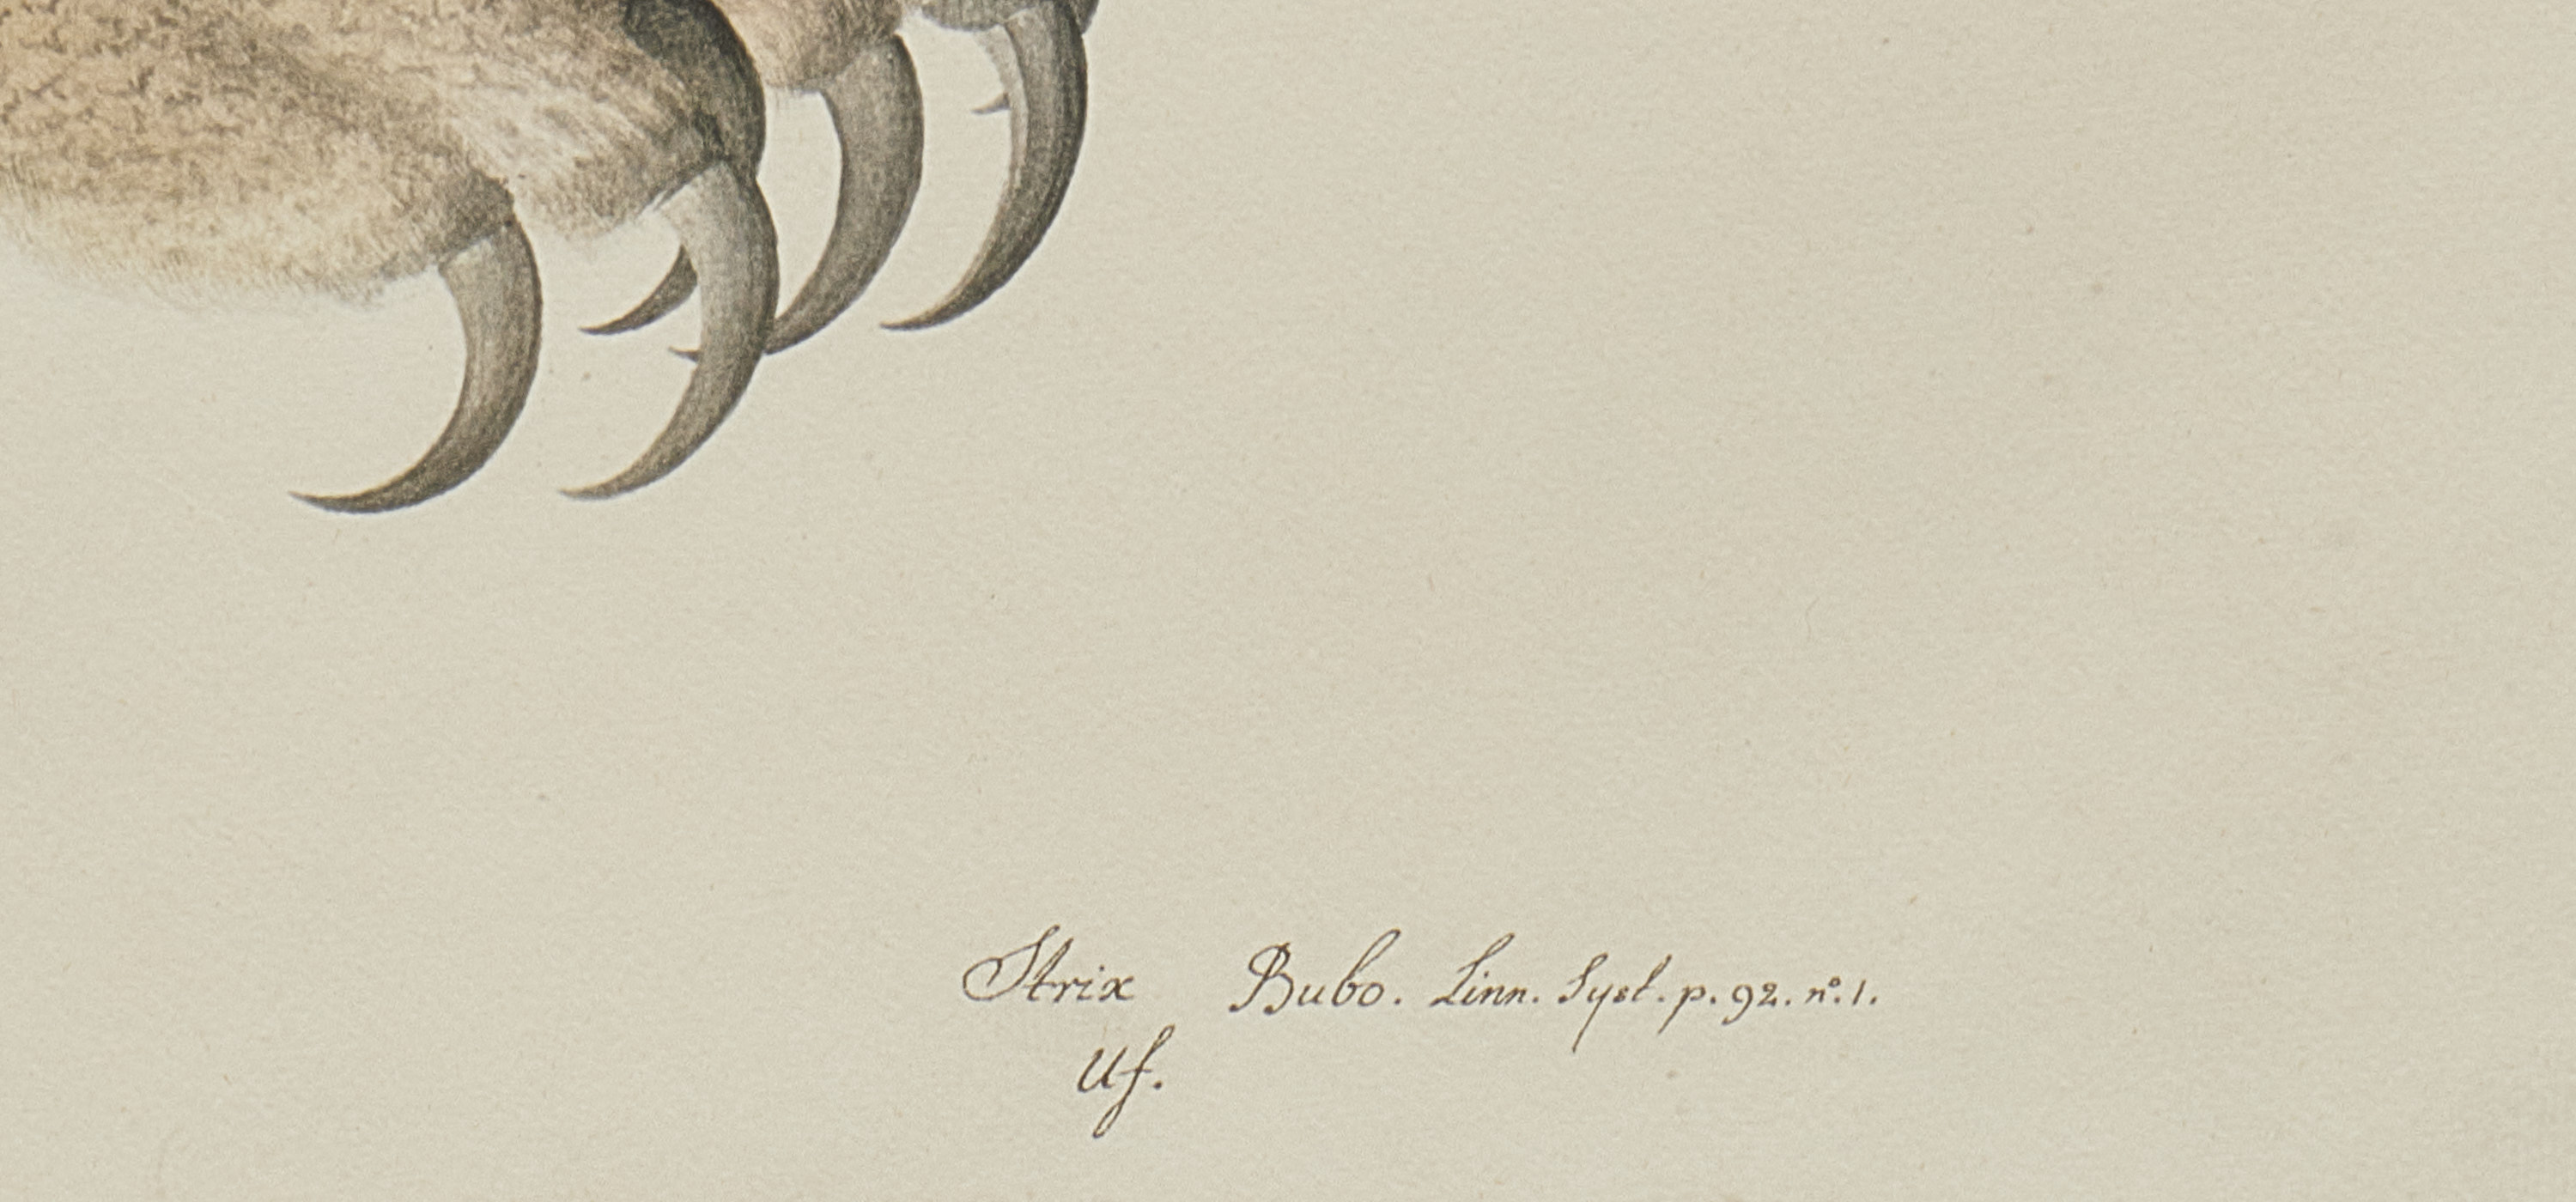 Strix Bubo. Linn. Syst. p. 92. nº. 1.
Uf.